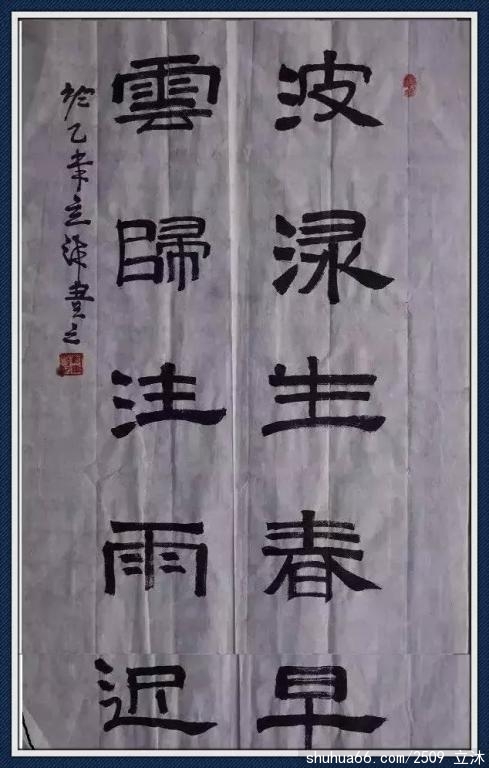 波渌生春早
雲歸注雨迟
於乙未立沐書之
shuhua66.com/2509 立沐